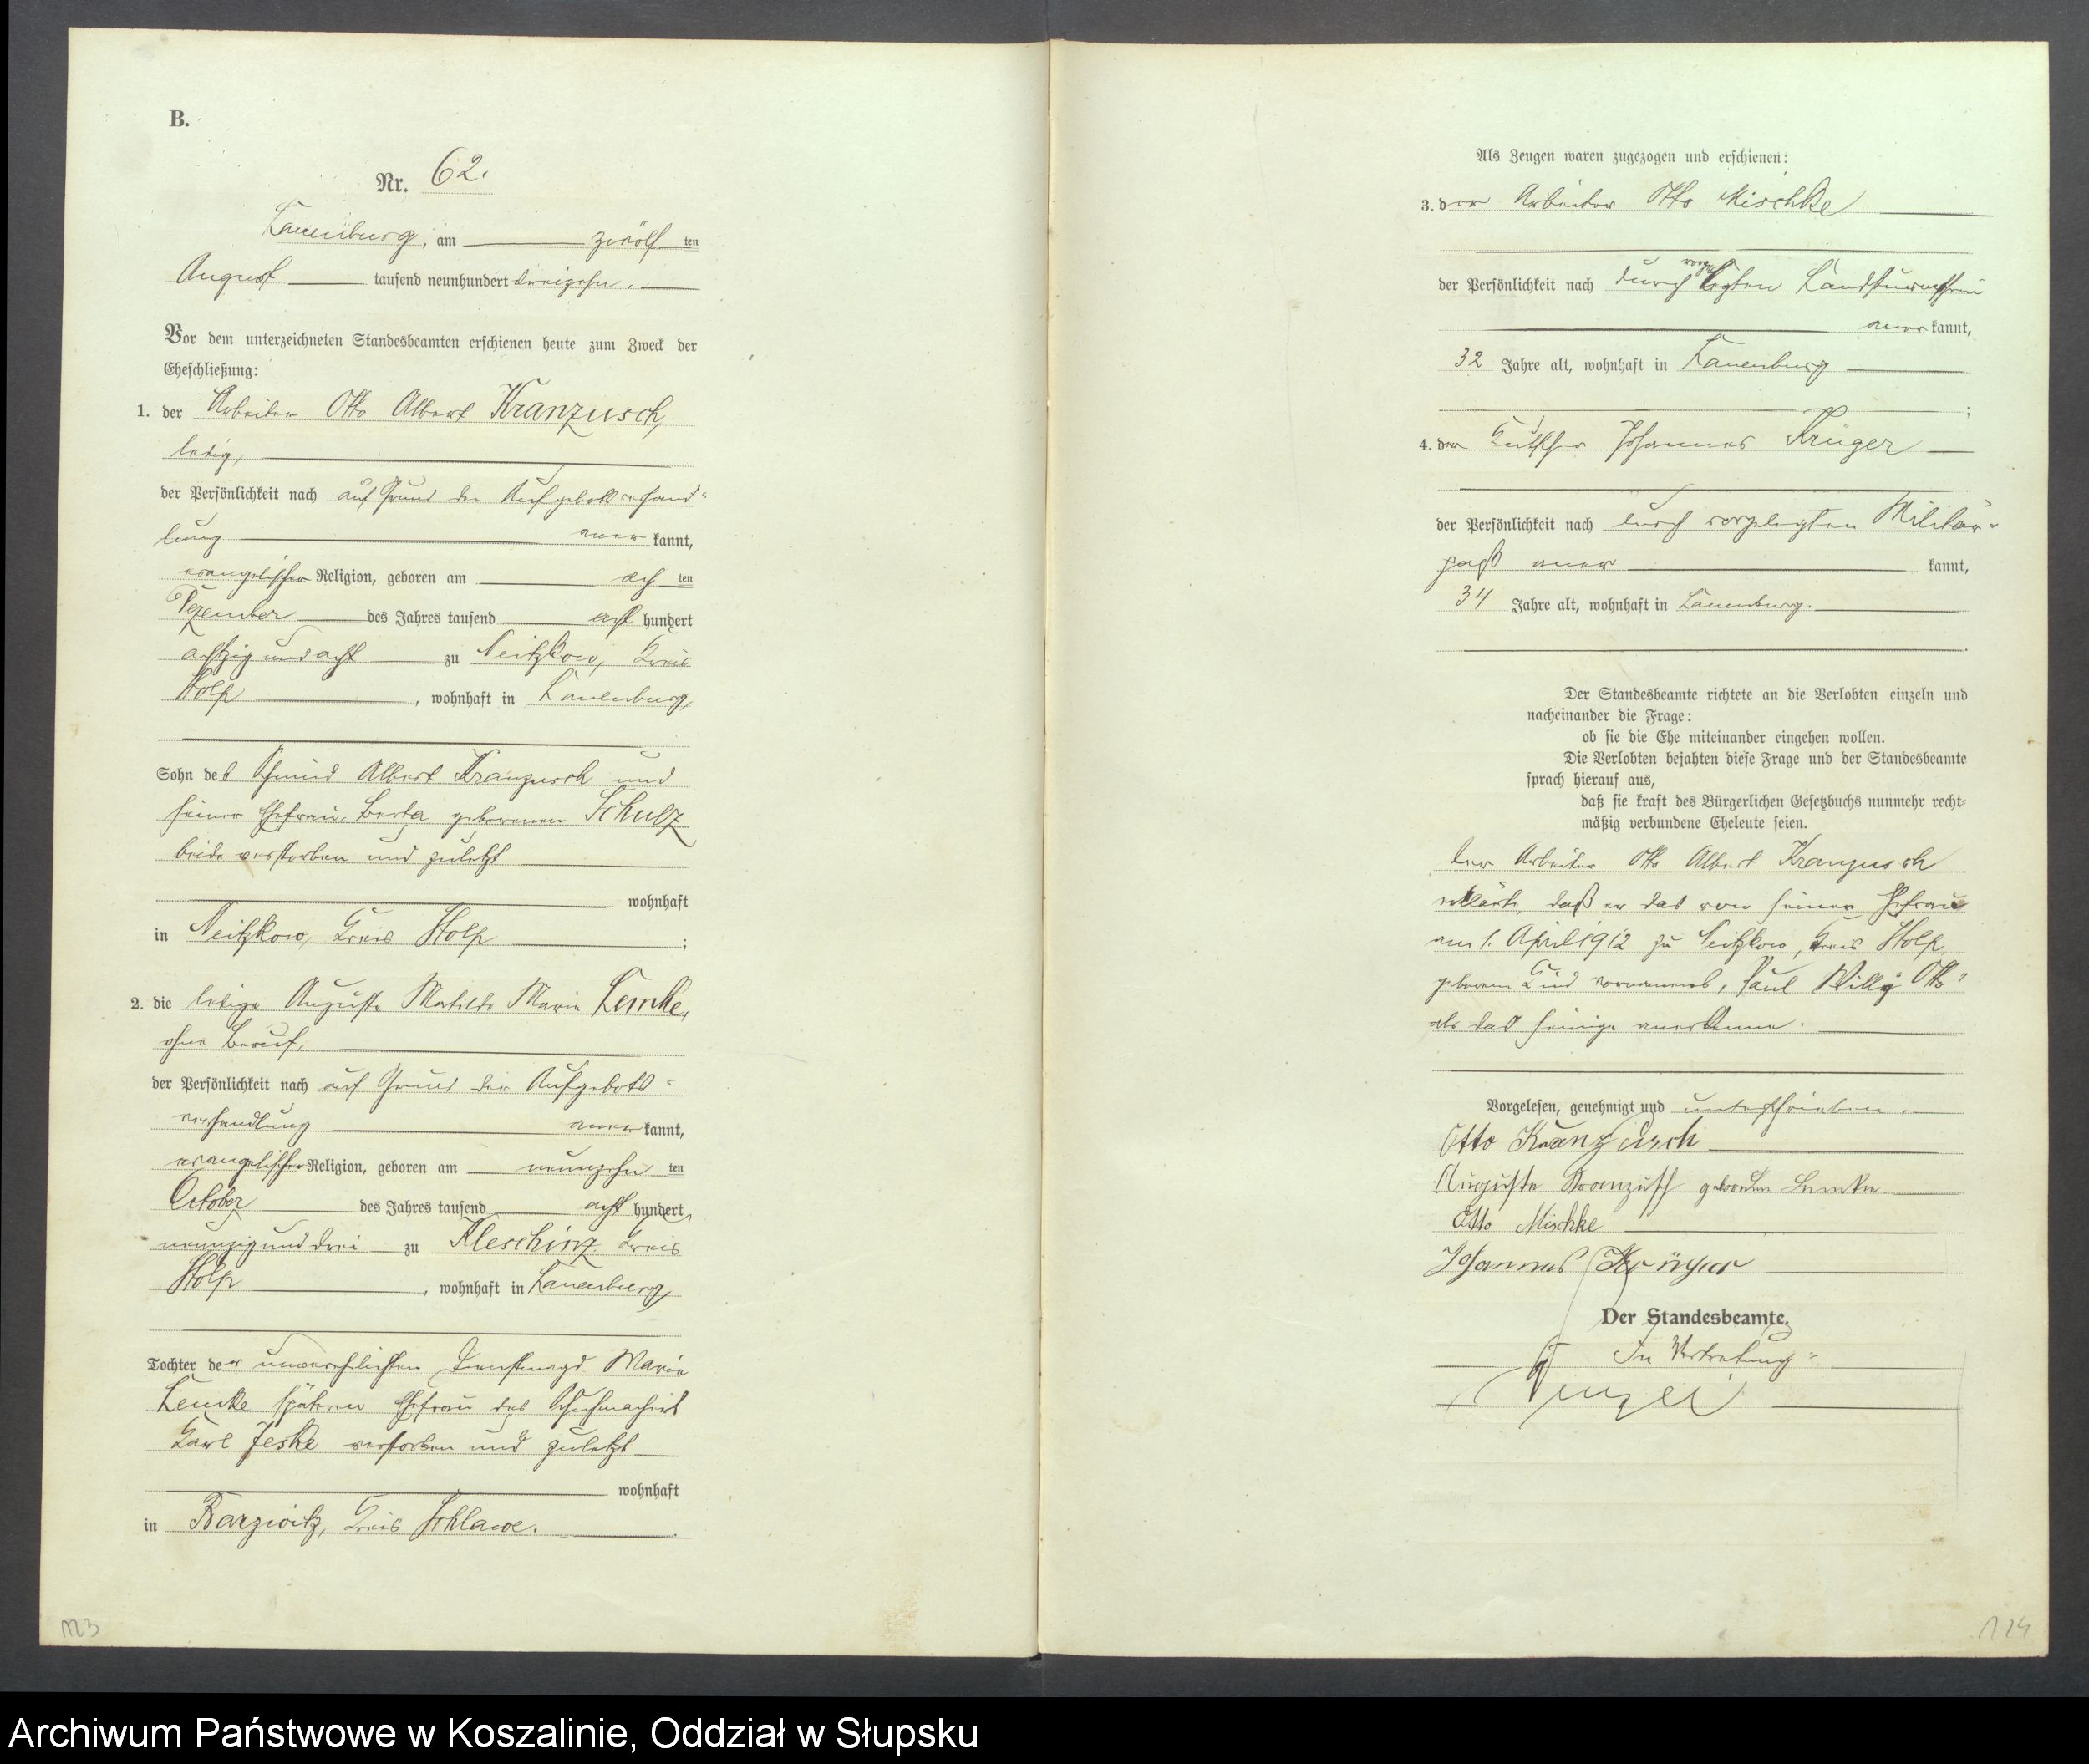 B.
Nr. 62.
Lauenburg, am zwölf ten
August tausend neunhundert dreizehn.
Vor dem unterzeichneten Standesbeamten erschienen heute zum Zweck der
Eheschließung:
1. der Arbeiter Otto Albert Kranzusch,
ledig,
der Persönlichkeit nach auf Grund der Aufgebotsverhand-
lung aner kannt,
evangelischer Religion, geboren am ach ten
Dezember des Jahres tausend acht hundert
achtzig und acht zu Neitzkow, Kreis
Stolp, wohnhaft in Lauenburg,
Sohn des Schmied Albert Kranzusch und
seiner Ehefrau, Berta geborenen Schulz
beide verstorben und zuletzt
wohnhaft
in Neitzkow, Kreis Stolp ;
2. die ledige Auguste Matilde Marie Lemke,
ohne Beruf,
der Persönlichkeit nach auf Grund der Aufgebots-
verhandlung aner kannt,
evangelischer Religion, geboren am neunzehn ten
October des Jahres tausend acht hundert
neunzig und drei zu Kleschinz Kreis
Stolp, wohnhaft in Lauenburg,
Tochter der unverehelichten Dienstmagd Marie
Lemke späteren Ehefrau des Schuhmachers
Karl Jeske verstorben und zuletzt
wohnhaft
in Barzwitz, Kreis Schlawe.
123
Als Zeugen waren zugezogen und erschienen:
3. der Arbeiter Otto Mischke
der Persönlichkeit nach durch vorgelegten Landsturmschein
aner kannt,
32 Jahre alt, wohnhaft in Lauenburg
;
4. der Kutscher Johannes Krüger
der Persönlichkeit nach durch vorgelegten Militär-
paß aner kannt,
34 Jahre alt, wohnhaft in Lauenburg.
Der Standesbeamte richtete an die Verlobten einzeln und
nacheinander die Frage:
ob sie die Ehe miteinander eingehen wollen.
Die Verlobten bejahten diese Frage und der Standesbeamte
sprach hierauf aus,
daß sie kraft des Bürgerlichen Gesetzbuchs nunmehr recht-
mäßig verbundene Eheleute seien.
Der Arbeiter Otto Albert Kranzusch
erklärte, daß er das von seiner Ehefrau
am 1. April 1912 zu Neitzkow, Kreis Stolp
geborene Kind vornamens, Paul Willy Otto"
als das seinige anerkenne.
Vorgelesen, genehmigt und unterschrieben.
Otto Kranzusch
Auguste Kranzusch geborene Lemke
Otto Mischke
Johannes Krüger
Der Standesbeamte.
In Vertretung:
124
Archiwum Państwowe w Koszalinie, Oddział w Słupsku